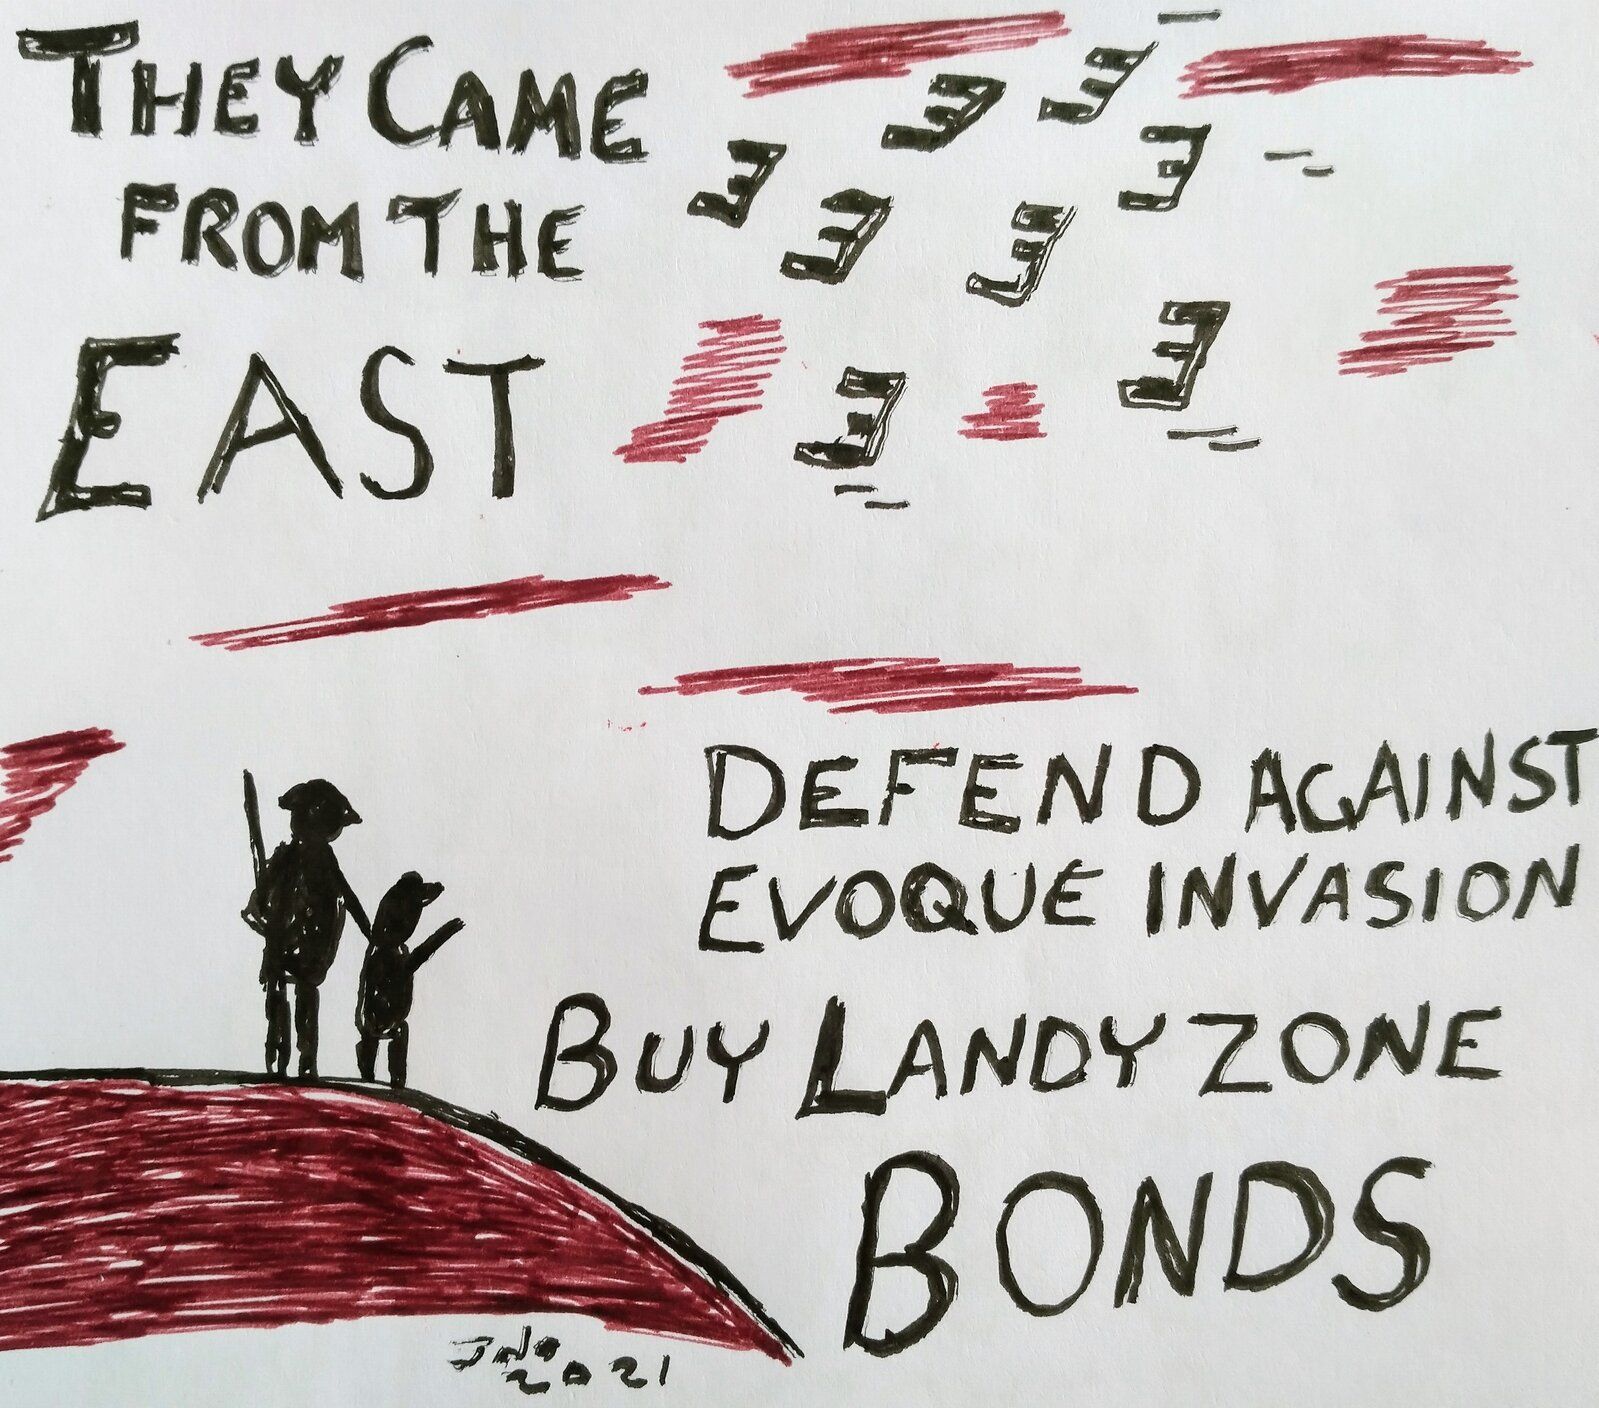 THEY CAME
FROM THE
EAST
DEFEND AGAINST
EVOQUE INVASION
BUY LANDY ZONE
BONDS
JNO
2021